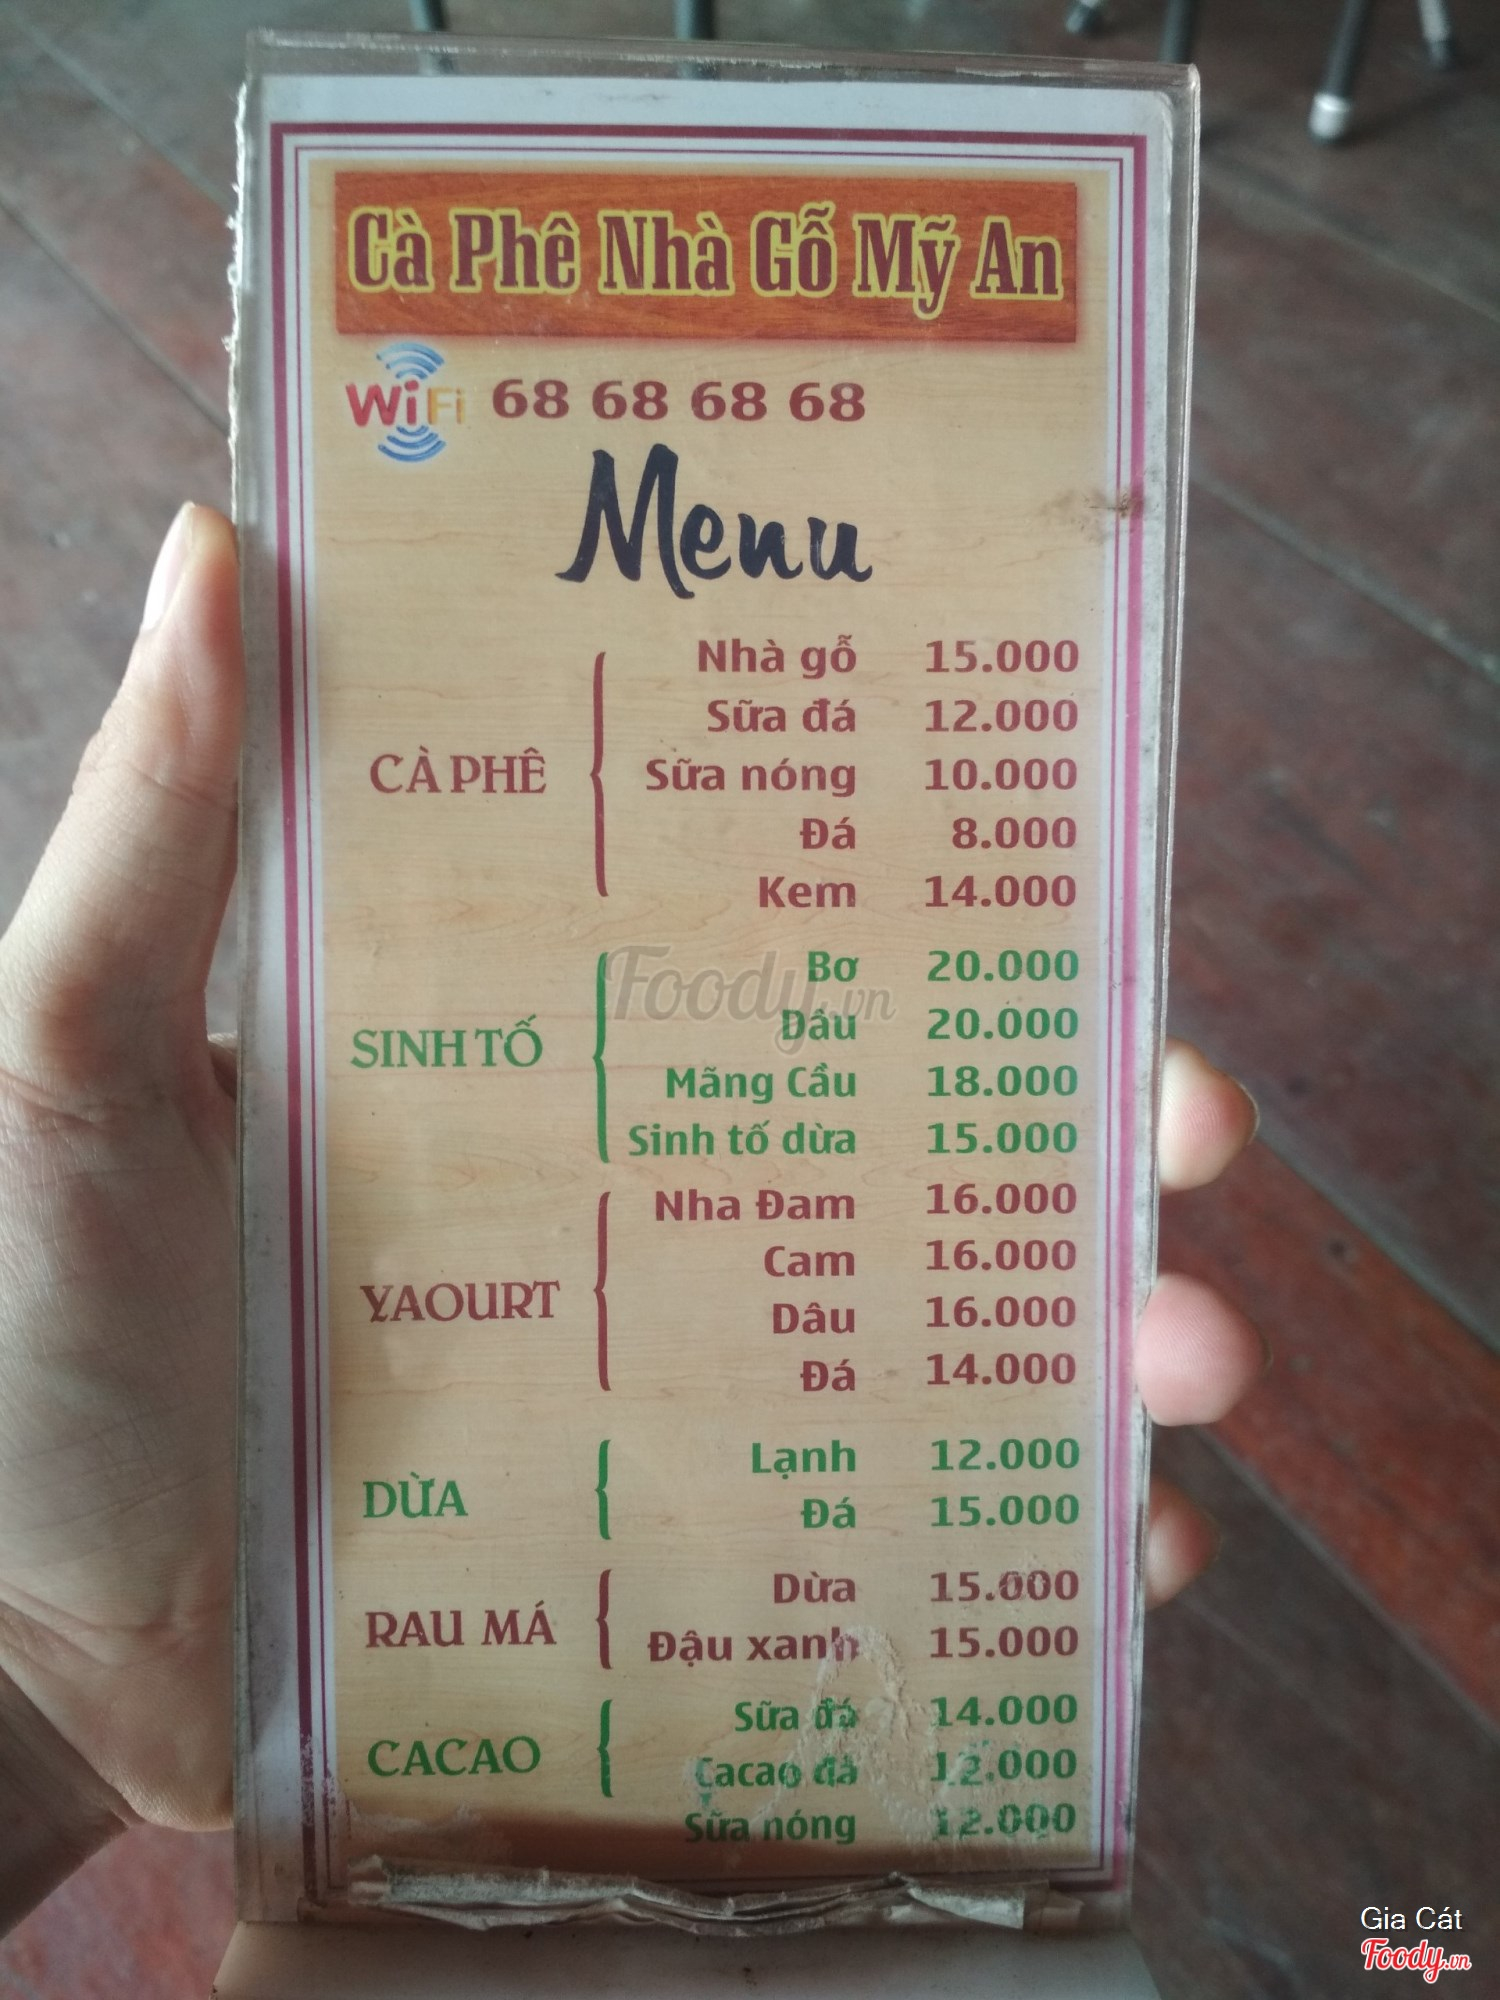 Cà Phê Nhà Gỗ Mỹ An
WiFi 68 68 68 68
Menu
CÀ PHÊ
Nhà gỗ 15.000
Sữa đá 12.000
Sữa nóng 10.000
Đá 8.000
Kem 14.000
SINH TỐ
Bơ 20.000
Dâu 20.000
Mãng Cầu 18.000
Sinh tố dừa 15.000
Foody.vn
YAOURT
Nha Đam 16.000
Cam 16.000
Dâu 16.000
Đá 14.000
DỪA
Lạnh 12.000
Đá 15.000
RAU MÁ
Dừa 15.000
Đậu xanh 15.000
CACAO
Sữa đá 14.000
Cacao đá 12.000
Sữa nóng 12.000
Gia Cát
Foody.vn